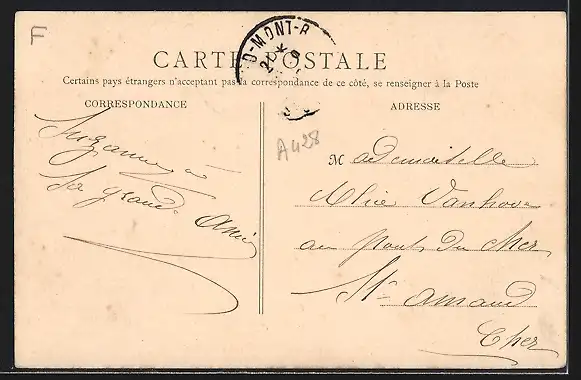 F
CARTE POSTALE
D-MONT-R
Certains pays étrangers n'acceptant pas la correspondance de ce côté, se renseigner à la Poste
CORRESPONDANCE
Suzanne à
Sa grande Amie
ADRESSE
A428
Mademoiselle
Alice Vanhove
au pont du Cher
St Amand
Cher